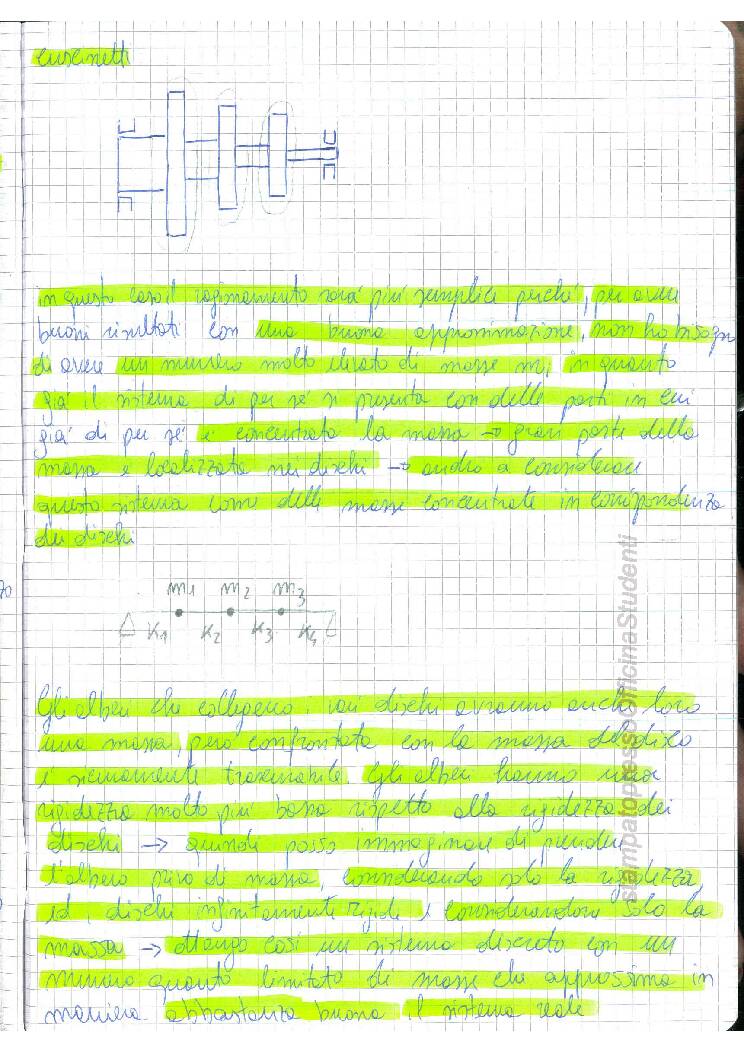 cuscinetti
in questo caso il ragionamento sarà più semplice perché, per avere
buoni risultati con una buona approssimazione, non ho bisogno
di avere un numero molto elevato di masse mi in quanto
già il sistema di per sé si presenta con delle parti in cui
già di per sé è concentrata la massa → gran parte della
massa è localizzata nei dischi → andrò a considerare
questo sistema come delle masse concentrate in corrispondenza
dei dischi
m1 m2 m3
K1 K2 K3 K4
Gli alberi che collegano i vari dischi avranno anche loro
una massa, però confrontata con la massa del disco
è sicuramente trascurabile. Gli alberi hanno una
rigidezza molto più bassa rispetto alla rigidezza dei
dischi → quindi posso immaginare di prendere
l'albero privo di massa, considerando solo la rigidezza,
ed i dischi infinitamente rigidi e considerandone solo la
massa → ottengo così un sistema discreto con un
numero quanto limitato di masse che approssima in
maniera abbastanza buona il sistema reale
stampatopressoOfficinaStudenti